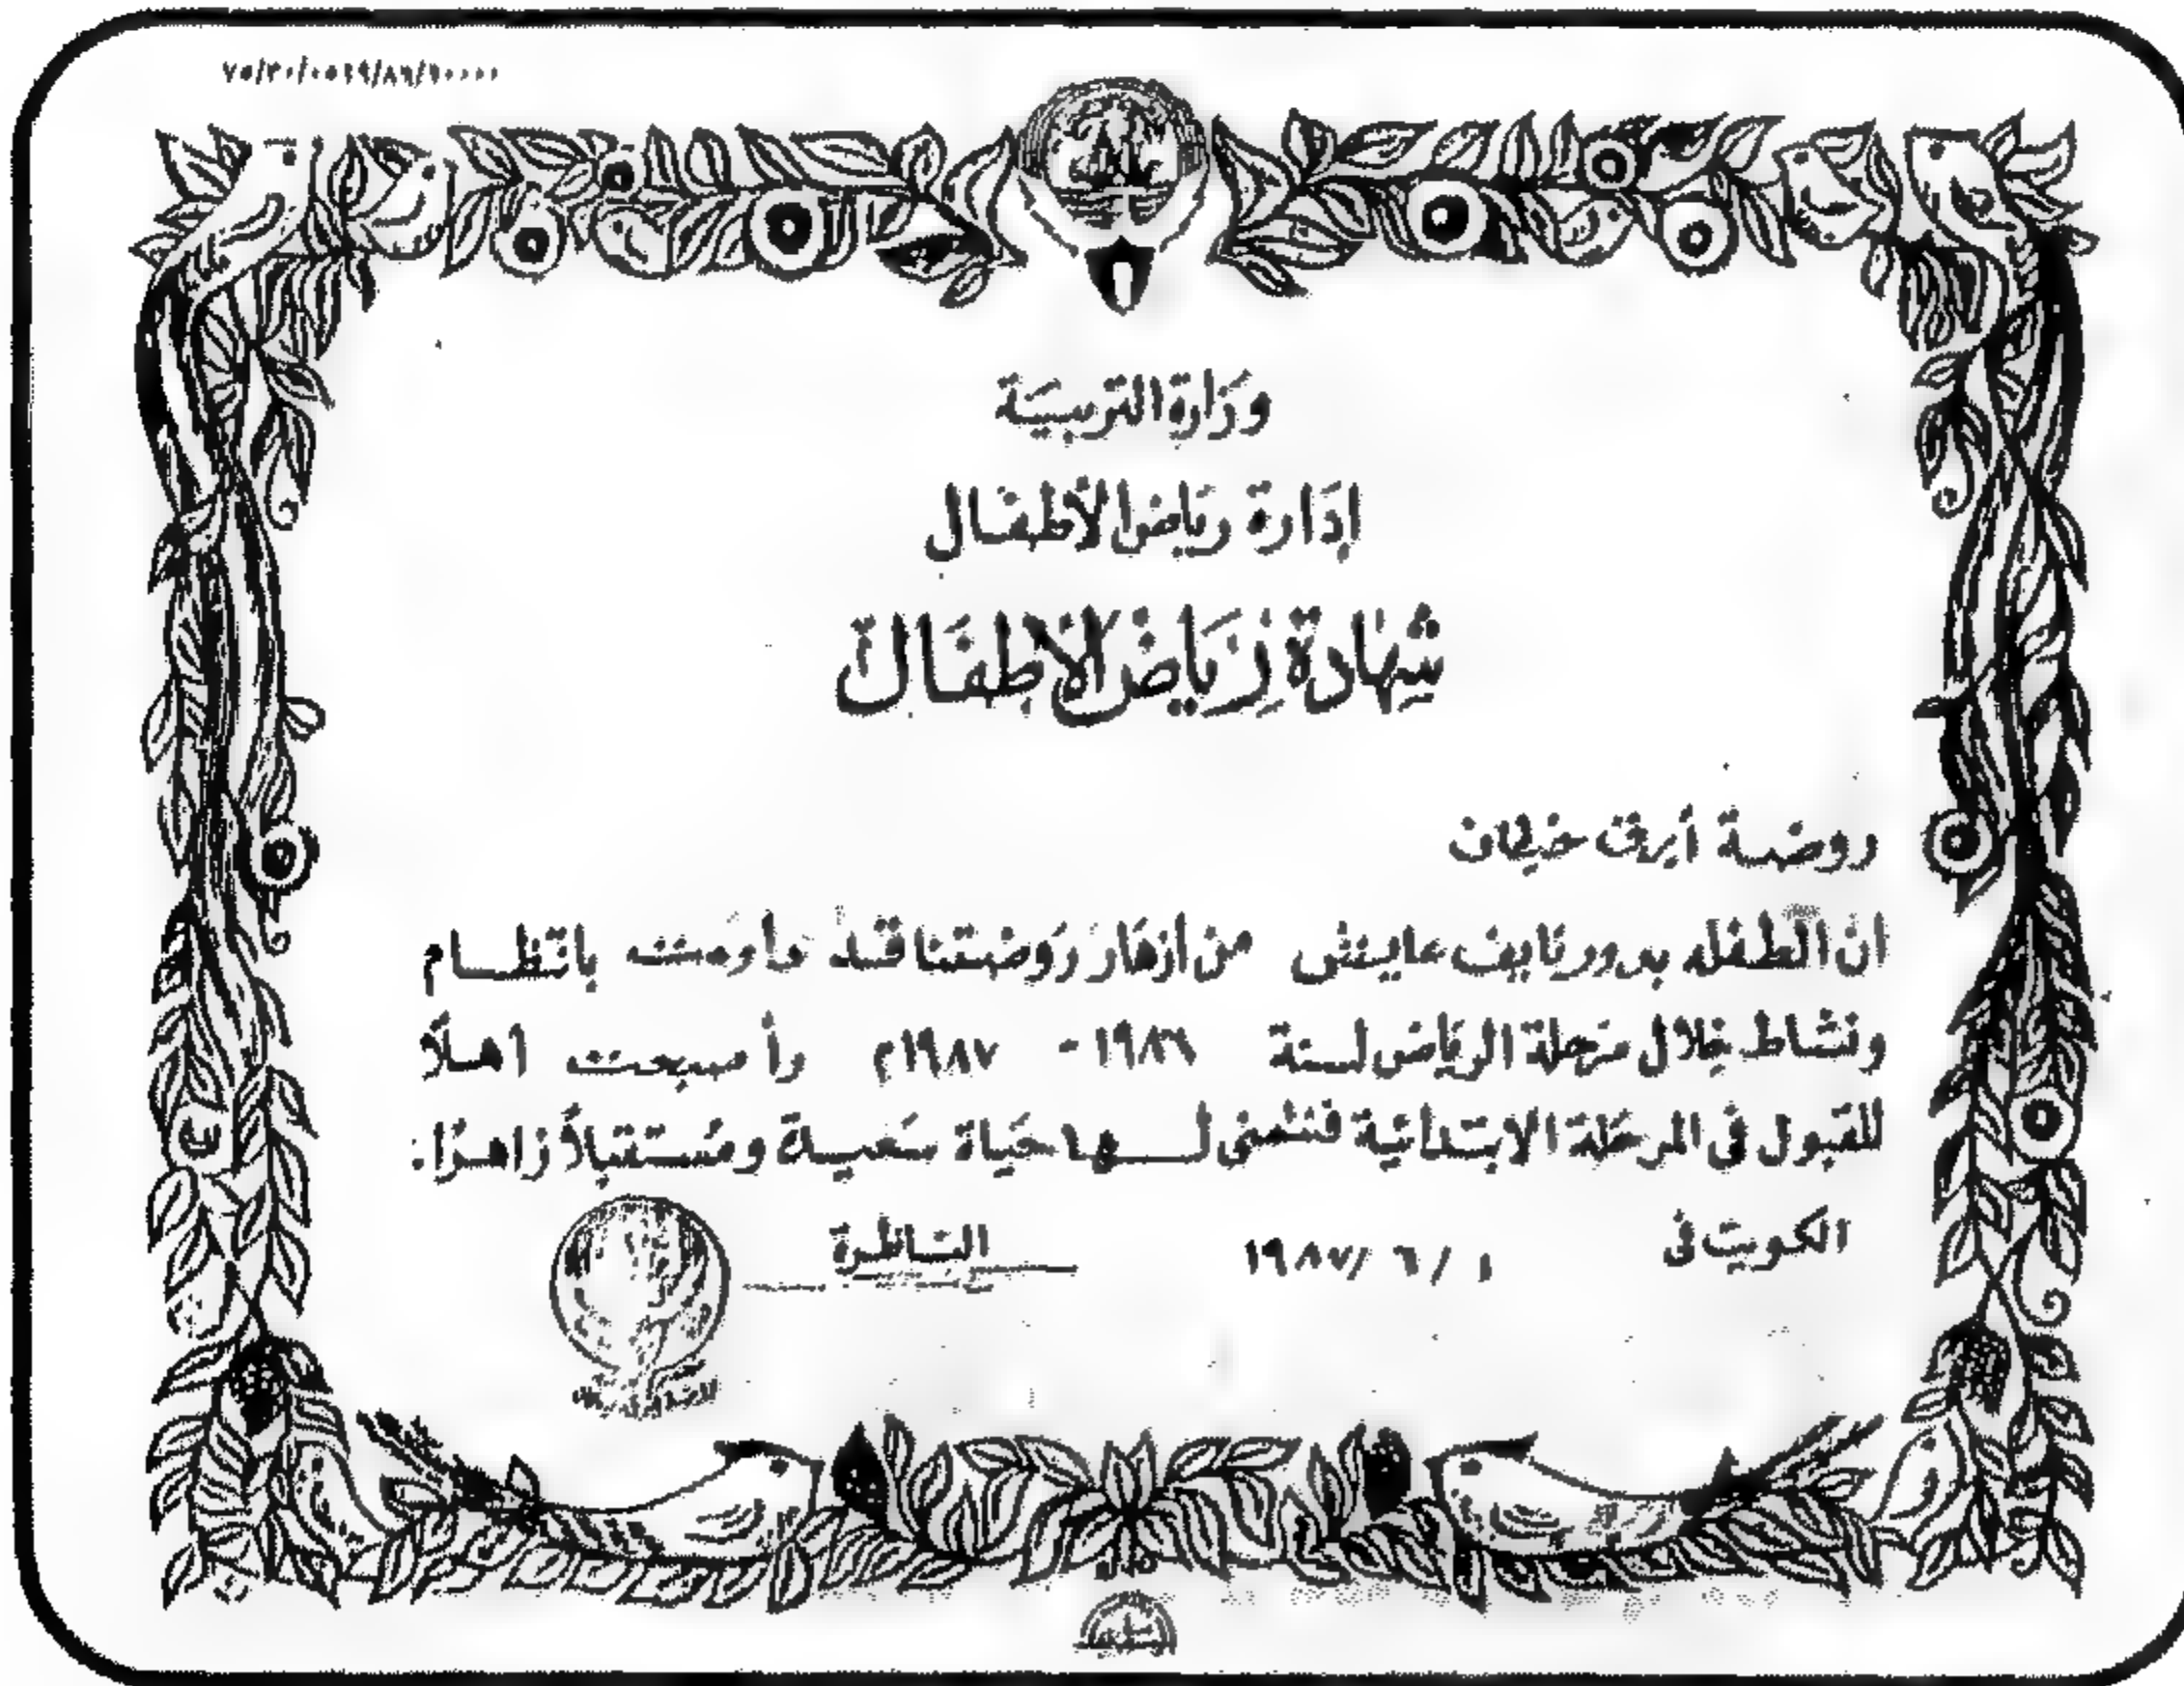 وزارة التربية
إدارة رياض الأطفال
شهادة رياض الأطفال
روضة أبرق خيطان
ان الطفله بدور نايف عايش من أزهار روضتنا قد داومت بانتظام
ونشاط خلال مرحلة الرياض لسنة ١٩٨٦ - ١٩٨٧م وأصبحت أهلاً
للقبول في المرحلة الابتدائية فنتمنى لها حياة سعيدة ومستقبلاً زاهرًا.
الكويت في ١ / ٦ /١٩٨٧ الناظرة